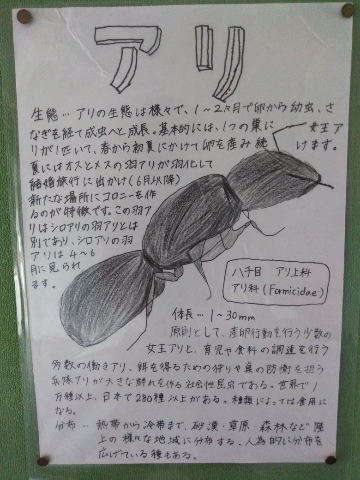 アリ
生態… アリの生態は様々で、1〜2ヵ月で卵から幼虫、さ
なぎを経て成虫へと成長。基本的には、1つの巣に
女王ア
リが1匹いて、春から初夏にかけて卵を産み続
けます。
夏にはオスとメスの羽アリが羽化して
結婚旅行に出かけ(6月以降)
新たな場所にコロニーを作
るのが特徴です。この羽ア
リはシロアリの羽アリとは
別であり、シロアリの羽
アリは4〜6
月に見られ
ます。
ハチ目 アリ上科
アリ科(Formicidae)
体長… 1〜30mm
原則として、産卵行動を行う少数の
女王アリと、育児や食料の調達を行う
多数の働きアリ、餌を得るための狩りや巣の防衛を担う
兵隊アリが大きな群れを作る社会性昆虫である。世界で1
万種以上、日本で280種以上がある。種類によっては食用に
なる。
分布… 熱帯から冷帯まで、砂漠・草原、森林など陸
上の様々な地域に分布する。人為的に分布を
広げている種もある。